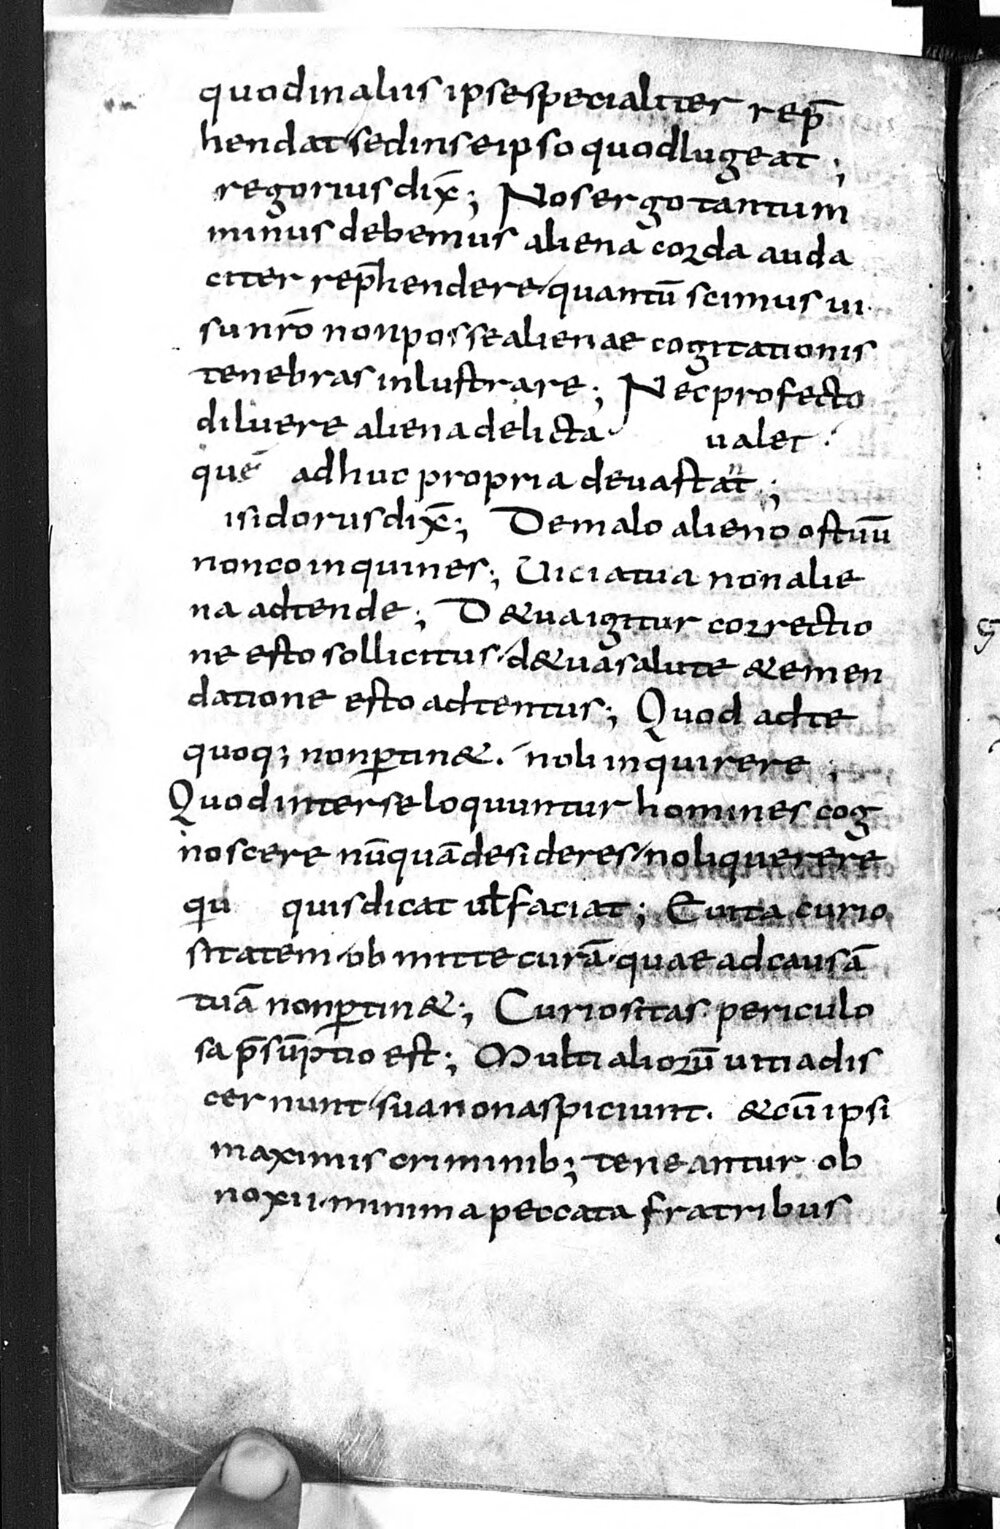 quod in aliis ipse specialiter rep̄
hendat sed in se ipso quod lugeat;
regorius dix̄; Nos ergo tantum
minus debemus aliena corda auda
citer rep̄hendere quantū scimus ui
su nr̄o non posse alienae cogitationis
tenebras inlustrare; Nec profecto
diluere aliena delicta ualet.
que adhuc propria deuastat;
isidorus dix̄; De malo alieno os tuū
non coinquines; Uicia tua non alie
na adtende; De tua igitur correctio
ne esto sollicitus. de tua salute & emen
datione esto adtentus; Quod ad te
quoq; non ꝑtin&. noli inquirere;
Quod inter se loquuntur homines cog
noscere nūquā desideres/noli querere
quid quis dicat ul̄ faciat; Euita curio
sitatem. obmitte curā. quae ad causā
tuā non ꝑtin&; Curiositas periculo
sa p̄sūptio est; Multi aliorū uitia dis
cernunt/sua non aspiciunt. & cū ipsi
maximis criminib; teneantur ob
noxii. minima peccata fratribus